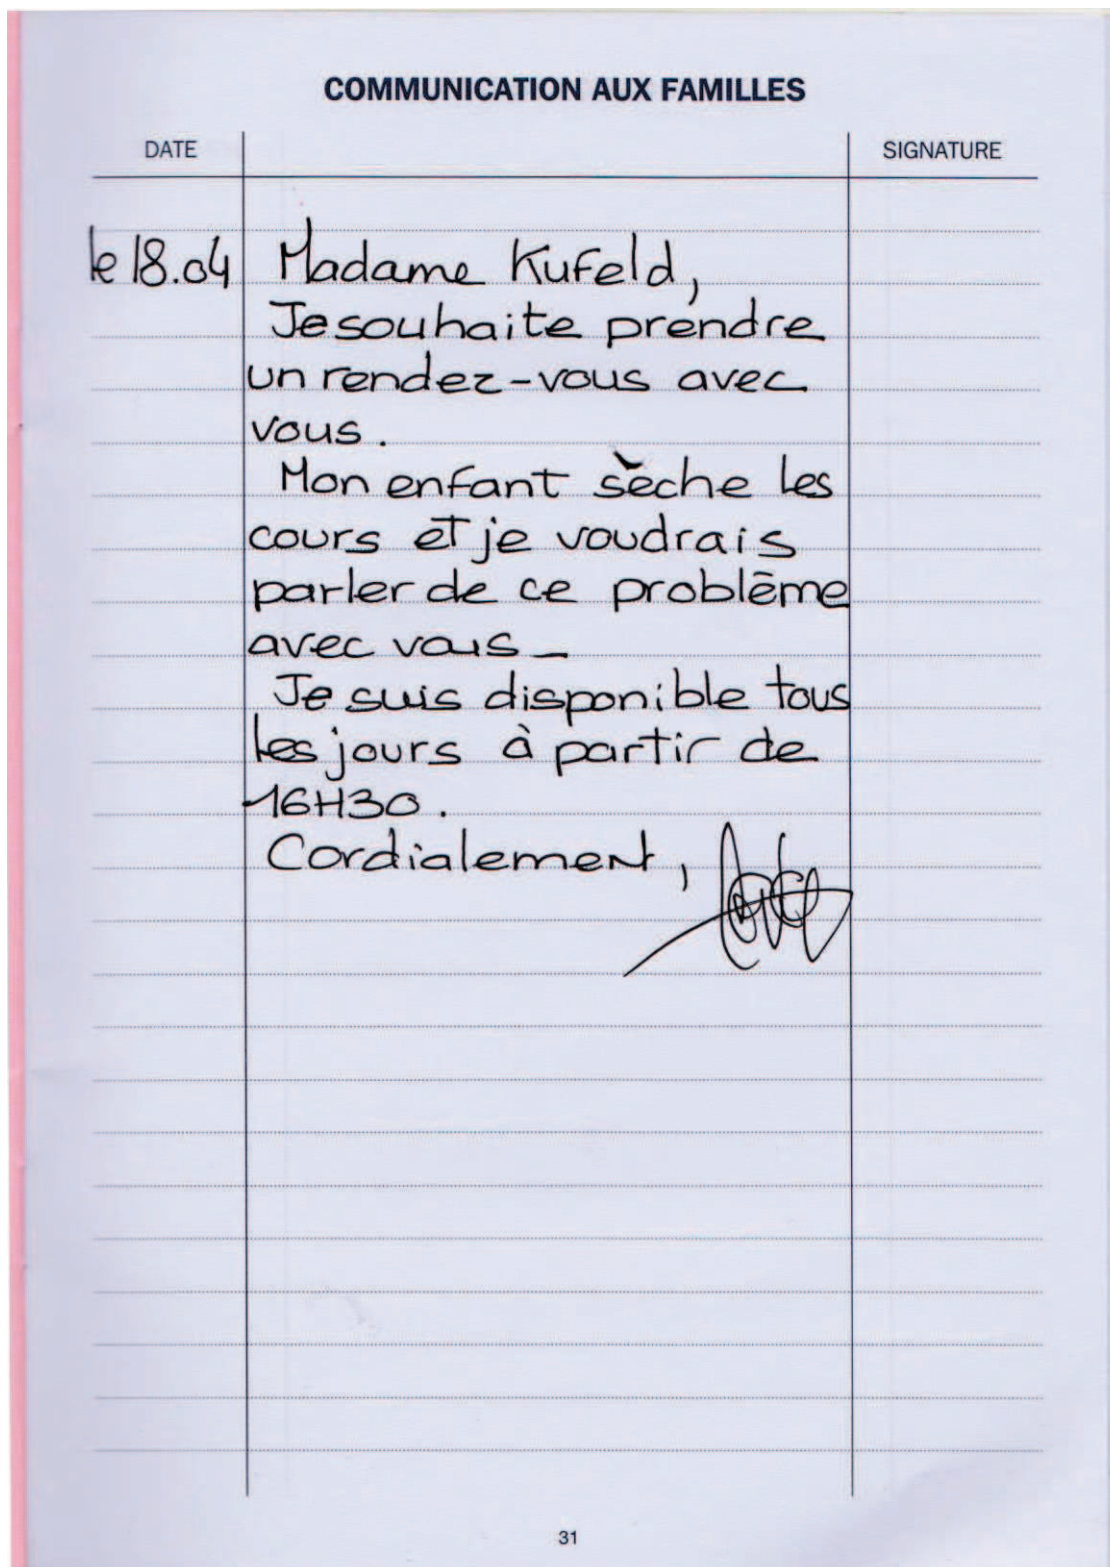 COMMUNICATION AUX FAMILLES
DATE SIGNATURE
le 18.04 Madame Kufeld,
Je souhaite prendre
un rendez-vous avec
vous.
Mon enfant sèche les
cours et je voudrais
parler de ce problème
avec vous_
Je suis disponible tous
les jours à partir de
16H30.
Cordialement,
31